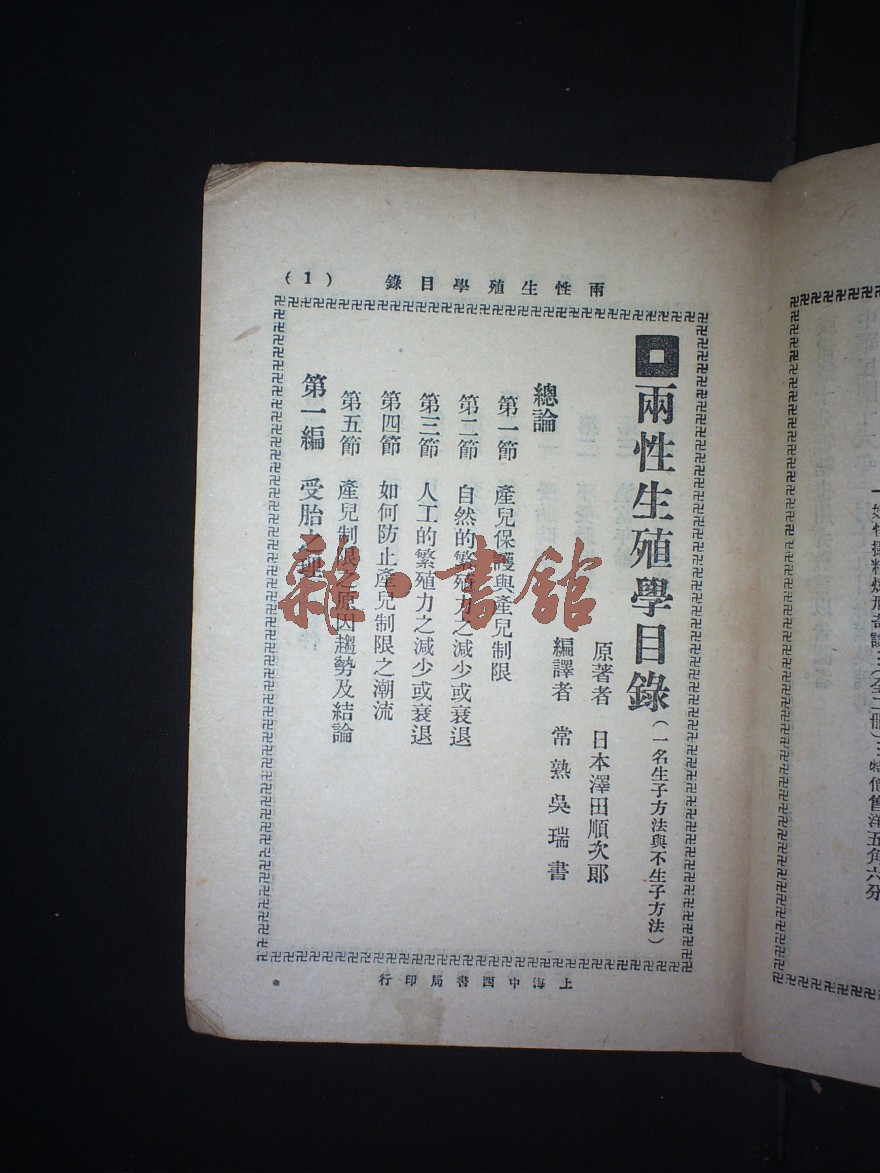 兩性生殖學目錄 (1)
兩性生殖學目錄(一名生子方法與不生子方法)
原著者 日本澤田順次郎
編譯者 常熟吳瑞書
總論
第一節 產兒保護與產兒制限
第二節 自然的繁殖力之減少或衰退
第三節 人工的繁殖力之減少或衰退
第四節 如何防止產兒制限之潮流
第五節 產兒制限之原因趨勢及結論
第一編 受胎之理
上海中西書局印行
雜·書館
(全二冊)
特價售洋五角六分